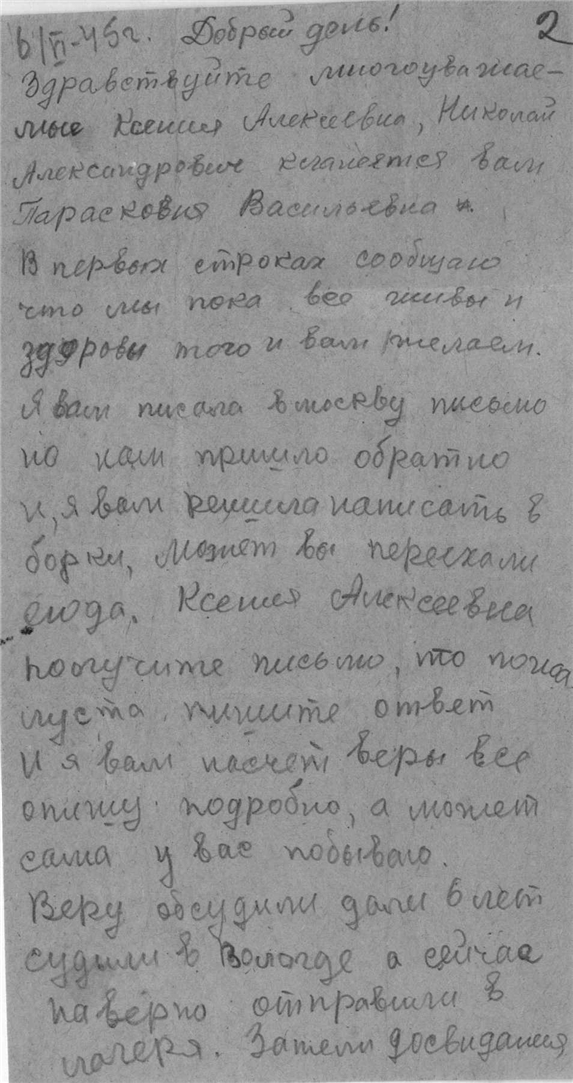 6/VI-45г. Добрый день! 2
Здравствуйте многоуважае-
мые Ксения Алексеевна, Николай
Александрович кланяется вам
Парасковия Васильевна
В первых строках сообщаю
что мы пока все живы и
здоровы того и вам желаем.
Я вам писала в москву письмо
но нам пришло обратно
и, я вам решила написать в
борки, может вы переехали
сюда. Ксения Алексеевна
получите письмо, то пожа
луста пишите ответ
И я вам насчет веры все
опишу подробно, а может
сама у вас побываю.
Веру обсудили дали 6 лет
судили в Вологде а сейчас
наверно отправили в
лагеря. Затем досвидания